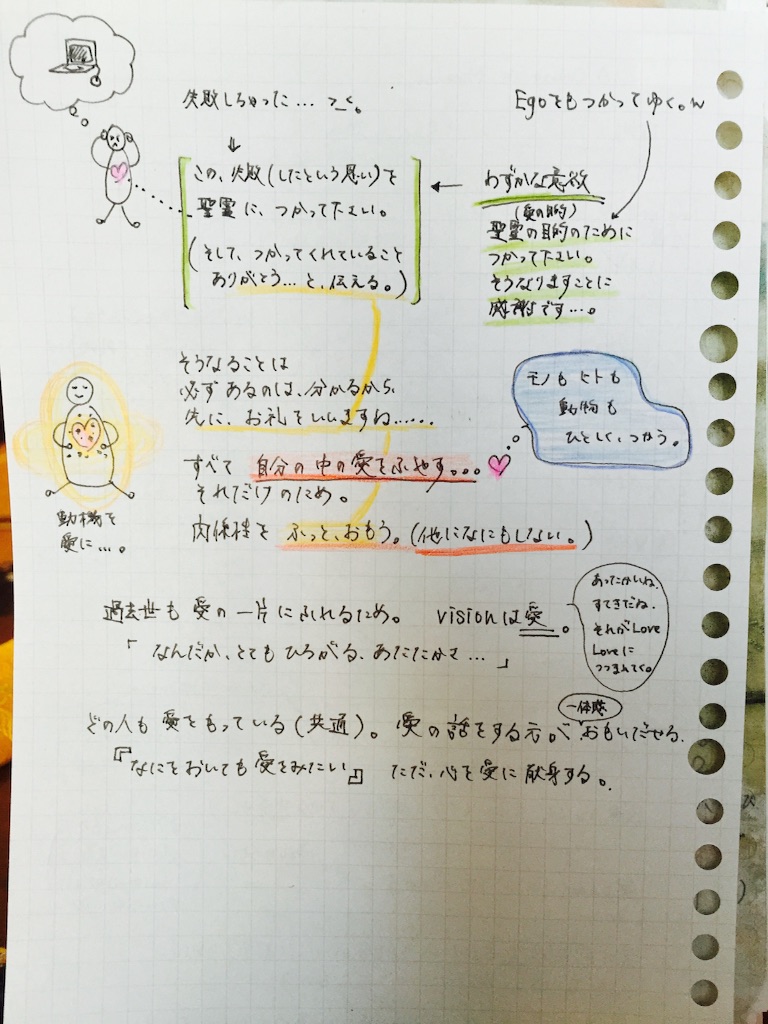 失敗しちゃった… >_<。
Egoをもつかってゆく。
この、失敗(したという思い)を
聖霊に、つかって下さい。
(そして、つかってくれていること
ありがとう…と、伝える。)
わずかな意欲
(愛の目的)
聖霊の目的のために
つかって下さい。
そうなりますことに
感謝です…。
そうなることは
必ずあるのは、分かるから、
先に、お礼をいいますね……
モノもヒトも
動物も
ひとしく、つかう。
すべて 自分の中の愛をふやす。。。
それだけのため。
動機を
愛に…。
関係性を ふっと、おもう。(他になにもしない。)
過去世も 愛の一片にふれるため。 visionは愛。
「なんだか、とてもひろがる、あたたかさ…」
あったかいね、
すてきだね、
それがLove
Loveに
つつまれてく。
一体感
どの人も 愛をもっている(共通)。愛の話をする方が おもいだせる。
『なにをおいても愛をみたい』 ただ、心を愛に献身する。